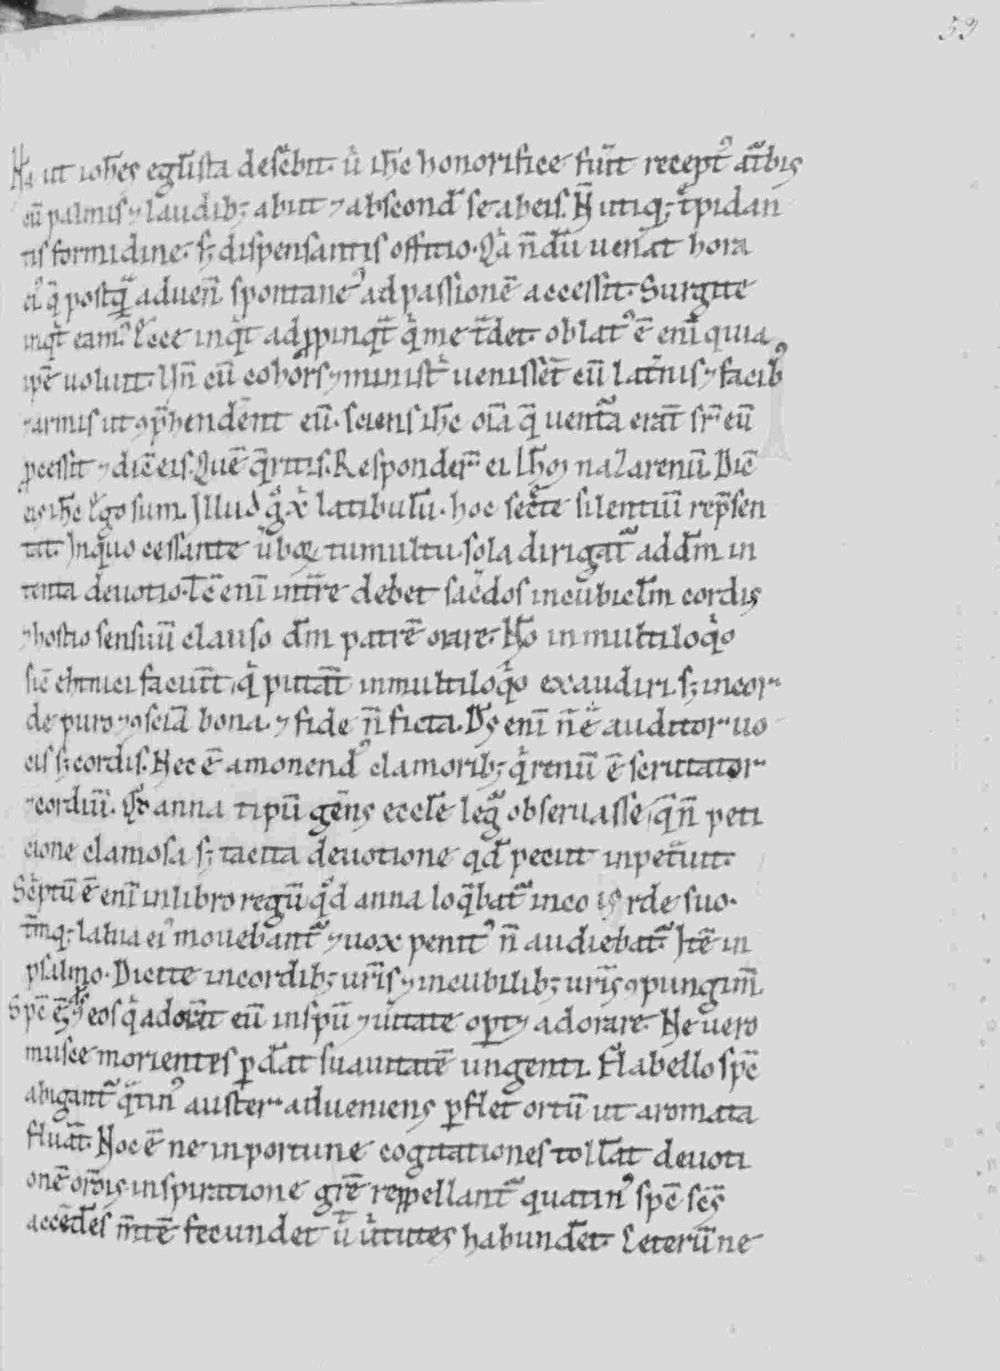 59
Nā ut ioħes egl̄ista desc̄bit. ù ih̄c honorifice fuīt recept⁹ at᷑bis
cū palmis ⁊ laudib; abiit ⁊ abscond̄ se ab eis. N̄ utiq; t̄pidan
tis formidine. s; dispensantis offitio. Qa n̄dū uen̄at hora
ei⁹ q̄ postq̄ aduen̄ spontane⁹ ad passionē accessit. Surgite
inq̄t eam⁹. Ecce inq̄t adp̄pinq̄t q̄ me t̄det. oblat⁹ ē enī quia
ip̄e uoluit. Vn̄ cū cohors ⁊ minist̄ uenissēt cū lat̄nis ⁊ facib⁹
⁊ armis ut ꝯp̄henderent eū. sciens ih̄c oīa q̄ uentā erāt sr̄ eū
ꝓcessit ⁊ dic̄ eis. Quē q̄ritis. Responder̄ ei Ih̄m nazarenū. Dic̄
eis ih̄c Ego sum. Illud g̊ x̄ latibulū. hoc sec̄te silentiū rep̄sen
tat. In quo cessante ubiq; tumultu. sola dirigat᷑ ad dm̄ in
tenta deuotio. Tc̄ enī int̄re debet sac̄dos in cubicl̄m cordis
⁊ hostio sensuū clauso dm̄ patrē orare. Nō in multiloq̄o
sic̄ ethnici faciūt, q̄ putāt in multiloq̄o exaudiri. s; in cor
de puro ⁊ ꝯscīa bona. ⁊ fide n̄ ficta. Ds̄ enī n̄ ē auditor uo
cis s; cordis. Nec ē amonend⁹ clamorib; q̄ renū ē scrutator
⁊ cordiū. Qd̄ anna tipū gens eccl̄e leg᷑ obseruasse, q̄ n̄ peti
cione clamosa s; tacita deuotione qd̄ peciit inpet̄uit.
Sc̄ptū ē enī in libro regū qd̄ anna loq̄bat᷑ in corde suo.
t̄mq; labia ei⁹ mouebant᷑ ⁊ uox penit⁹ n̄ audiebat᷑. Itē in
psalmo. Dicite in cordib; ur̄is ⁊ in cubilib; ur̄is ꝯpungim̄.
Spc̄ ē ds̄ ⁊ eos q̄ adorāt eū in spū ⁊ ūitate oport; adorare. Ne uero
musce morientes ꝑdāt suauitatē ungenti. Flabello spc̄
abigant᷑ q̄tin⁹ auster adueniens ꝑflet ortū ut aromata
fluāt. Hoc ē ne inportune cogitationes tollāt deuoti
onē or̄ois inspiratione gr̄e rep̄pellant᷑ quatin⁹ spc̄ sc̄s
accedēs m̄tē fecundet ut ūtutes habundēt. Ceterū ne